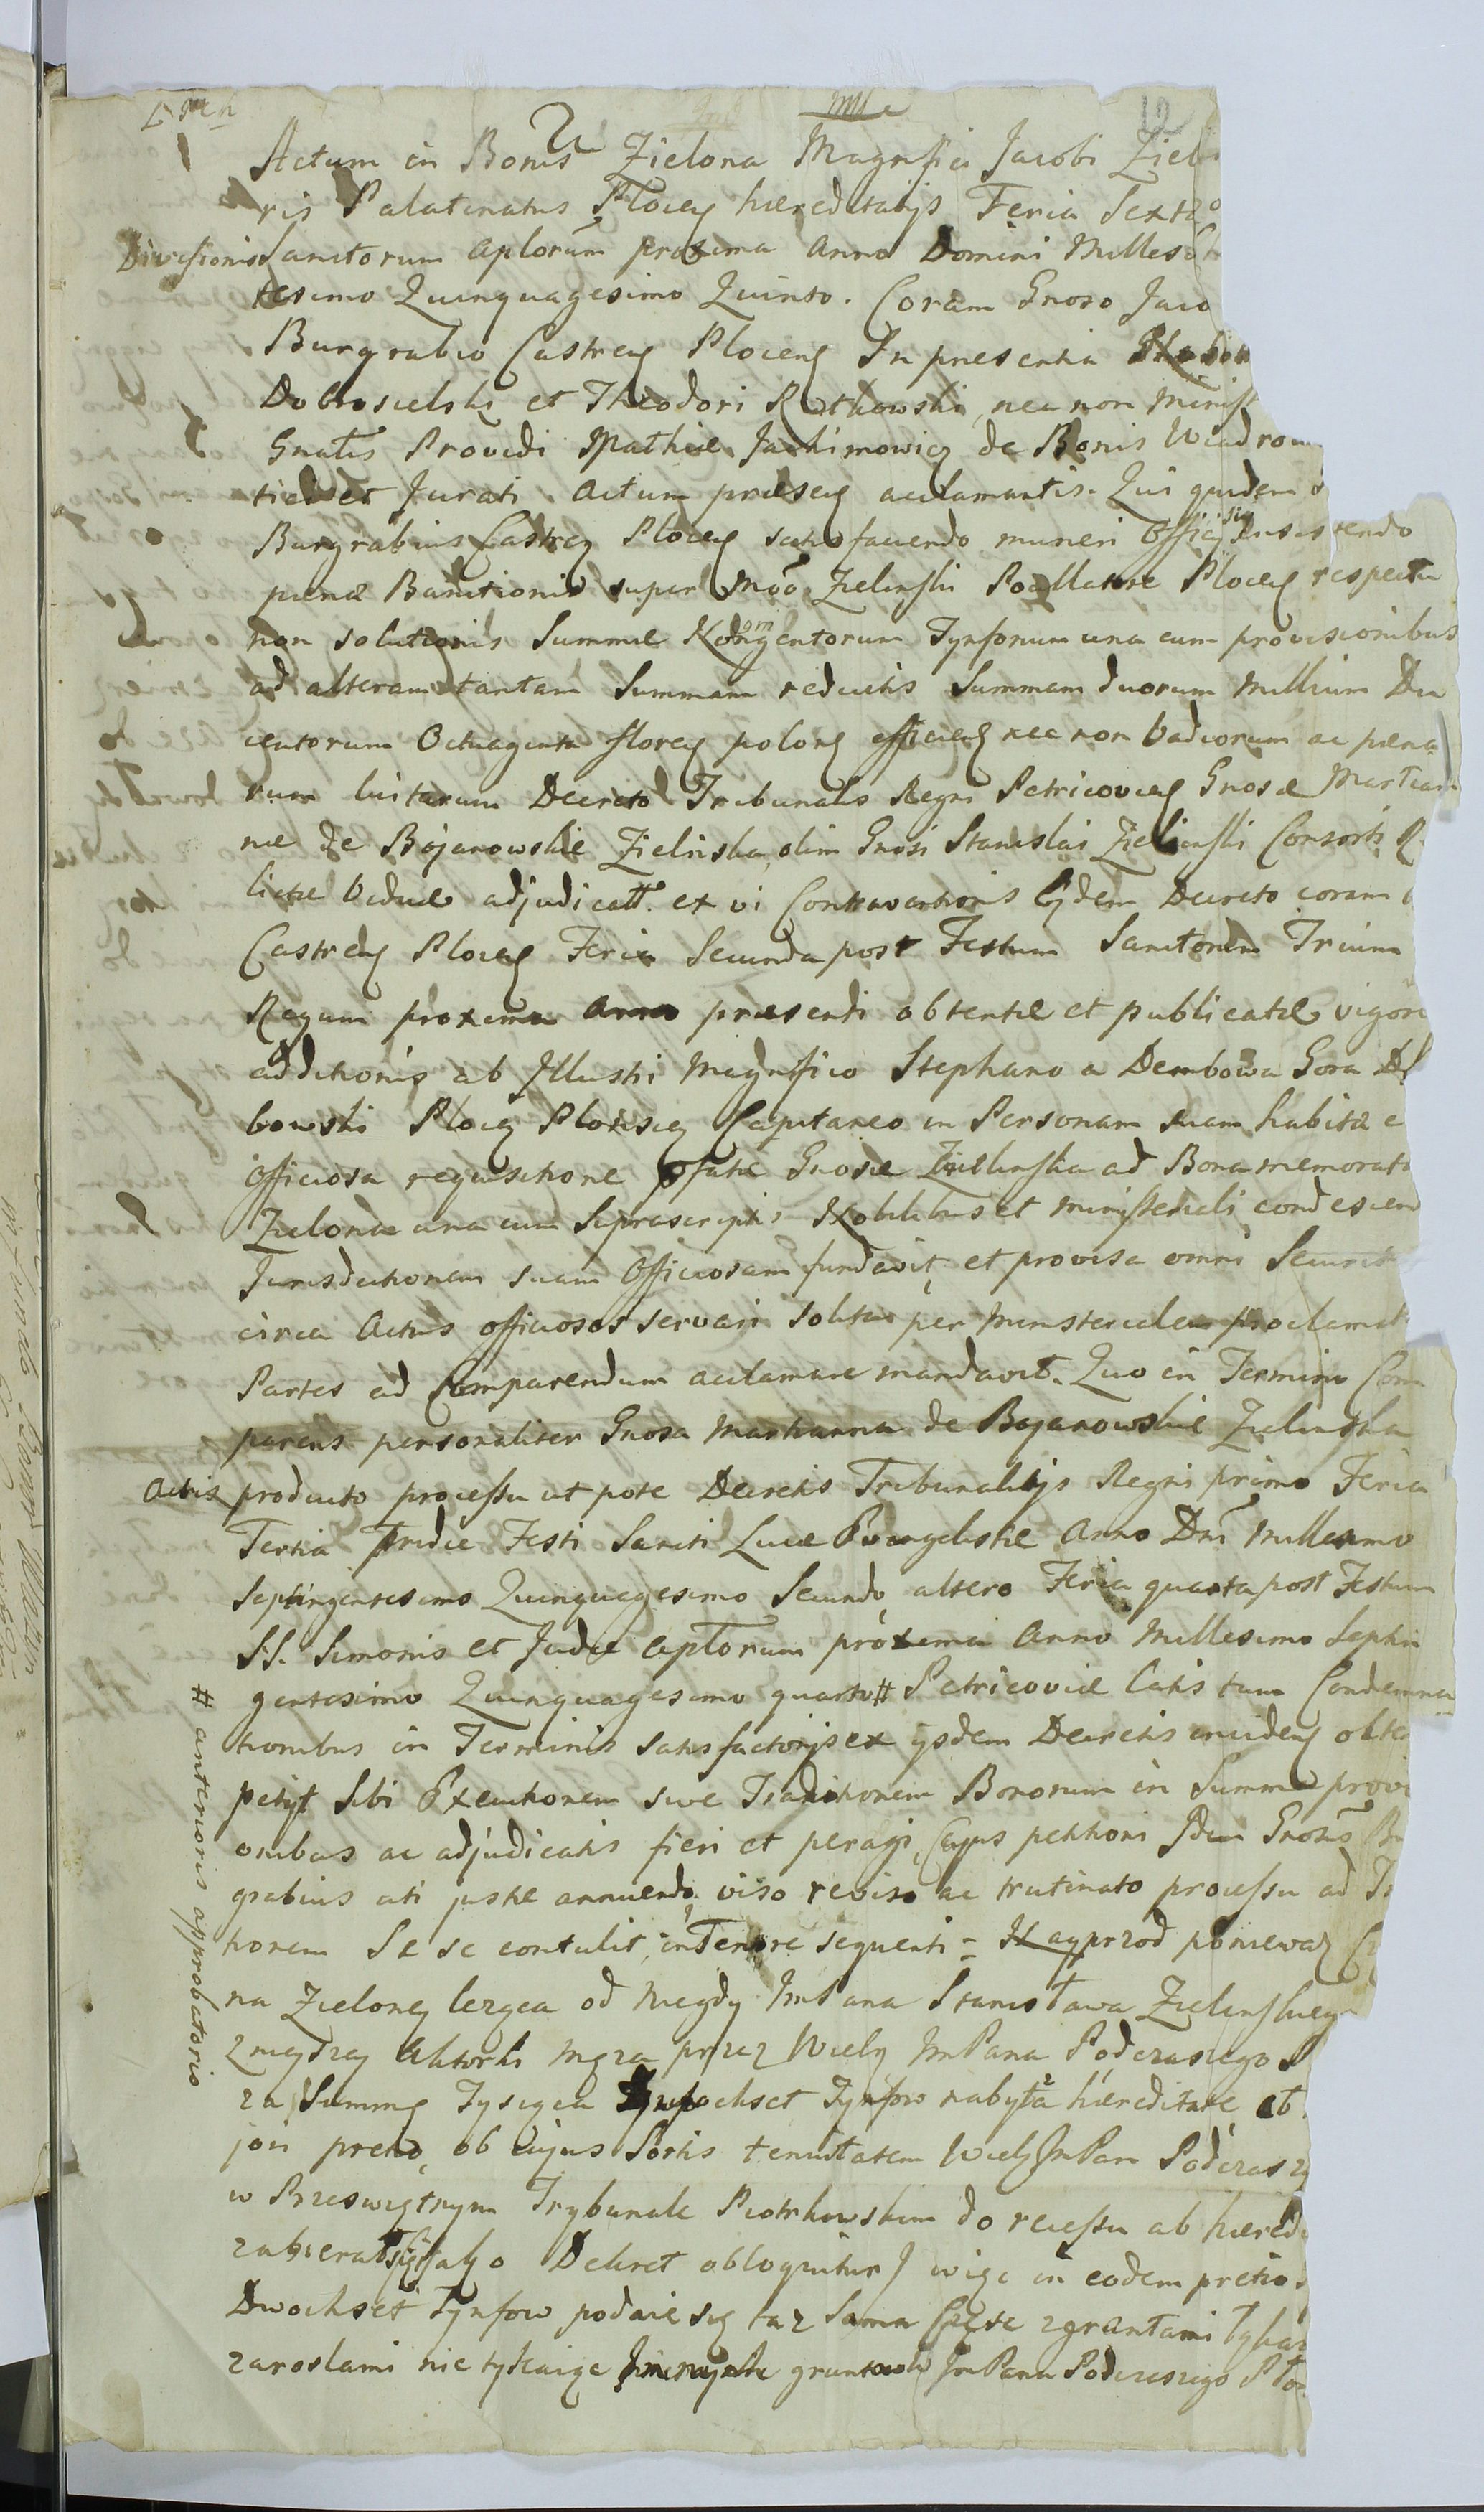 Actum in Bonis Zielona Magnifici Jacobi Ziel
ris Palatinatus Plocen hæreditarijs Feria Sexta
Divisionis Sanctorum Aplorum proxima Anno Domini Milles
tesimo Quinquagesimo Quinto. Coram Gnoso Jaco
Burgrabio Castren Plocen In præsentia
Dobrosielski et Theodori Rutkowski, nec non Minist
Gnalis Providi Mathiæ Jachimowicz de Bonis Wiadrow
ticis et Jurati Actum præsen acclamantis. Qui quidem
Burgrabius Castren Plocen satisfaciendo muneri Officij sui insistendo
pœnæ Banitionis super Mgco Zielinski Pocillatore Plocen respectu
non solutionis Summæ Nongentorum Tynfonum una cum provisionibus
ad alteram tantam Summam reductis Summam duorum Millium Du
centorum Octuaginta floren polon efficien nec non Vadiorum ac pœna
rum luitarum Decreto Tribunalis Regni Petricovien Gnosæ Martian
næ de Bojanowskie Zielinska, olim Gnosi Stanislai Zielinski Consortis R
lictæ Viduæ adjudicatt. ex vi Contraventionis Ejdem Decreto coram
Castren Plocen Feria Secunda post Festum Sanctorum Trium
Regum proxima Anno præsenti obtentæ et publicatæ, vigore
additionis ab Illustri Magnifico Stephano a Dembowa Gora D
bowski Plocen Plonscen Capitaneo in Personam suam habita e
Officiosa requisitione pfatæ Gnosæ Zielinska ad Bona memorata
Zielona una cum Suprascriptis Nobilibus et Ministeriali condescen
Jurisdictionem suam Officiosam fundavit, et provisa omni Securit
circa Actus officiosos servari solita per Ministerialem proclamat
Partes ad Comparendum acclamare mandavit. Quo in Termino Com
parens personaliter Gnosa Martianna de Bojanowskie Zielinska
Actis producto processu ut pote Decretis Tribunalitijs Regni primo Feria
Tertia Pridie Festi Sancti Lucæ Evangelistæ Anno Dni Millesimo
Septingentesimo Quinquagesimo Secundo, altero Feria quarta post Festum
SS. Simonis et Judæ Aptorum proxima Anno Millesimo Septin
gentesimo Quinquagesimo quarto # Petricoviæ Latis tum Condemna
# anterioris approbatorio
tionibus in Terminis Satisfactorijs ex ijsdem Decretis inciden obte
petijt Sibi Executionem sive Traditionem Bonorum in Summa provi
onibus ac adjudicatis fieri et peragi, Cujus petitioni Idem Gnosus B
grabius uti justæ annuendo, viso reviso ac trutinato processu ad Tr
tionem Se se contulit, in Tenore sequenti = Nayprzod poniewaz
na Zieloney lezgca od niegdy ImPana Stanisława Zielinskieg
zmeyszey Aktorki męza przez Wielg ImPana Podczaszego P
za Summę Tysięca dwochset Tynfow nabyta hæreditarie, et
jori pretio, ob cujus Sortis tenuitatem Wielg ImPan Podczaszy
w Przeświętnym Trybunale Piotrkowskim do recessu ab hæredi
zabierał się jako Dekret obloquitur) więc in eodem pretio
Dwochset Tynfow podaie się taz sama Część z gruntami łąka
zaroslami nie tykaiąc innych gruntow ImPana Podczaszego Pło